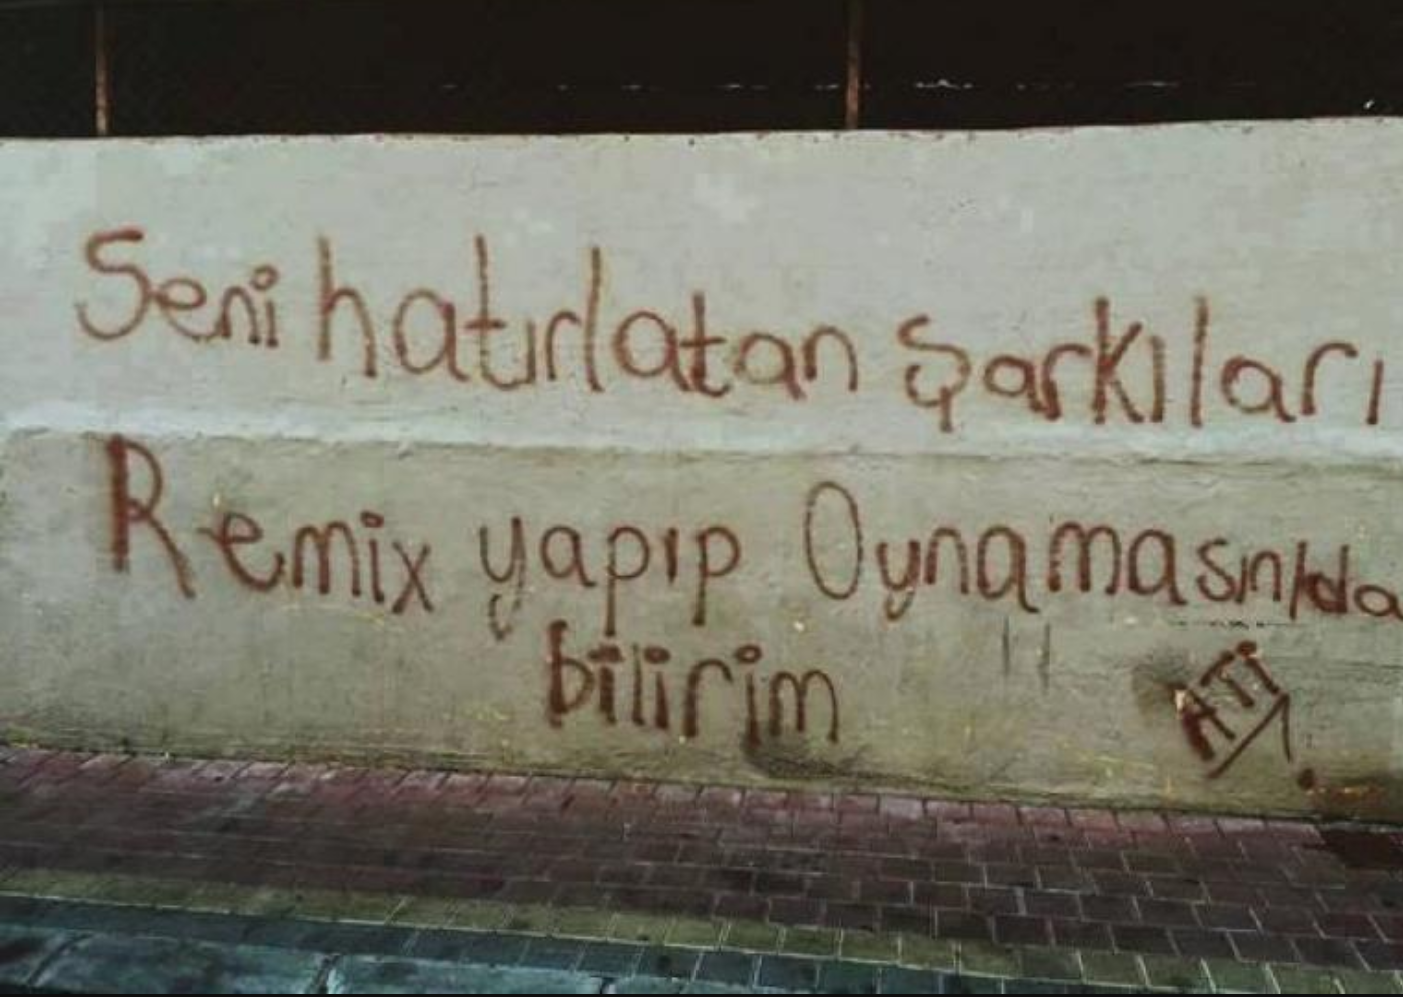 Seni hatırlatan şarkıları
Remix yapıp Oynamasınıda
bilirim
ATİ